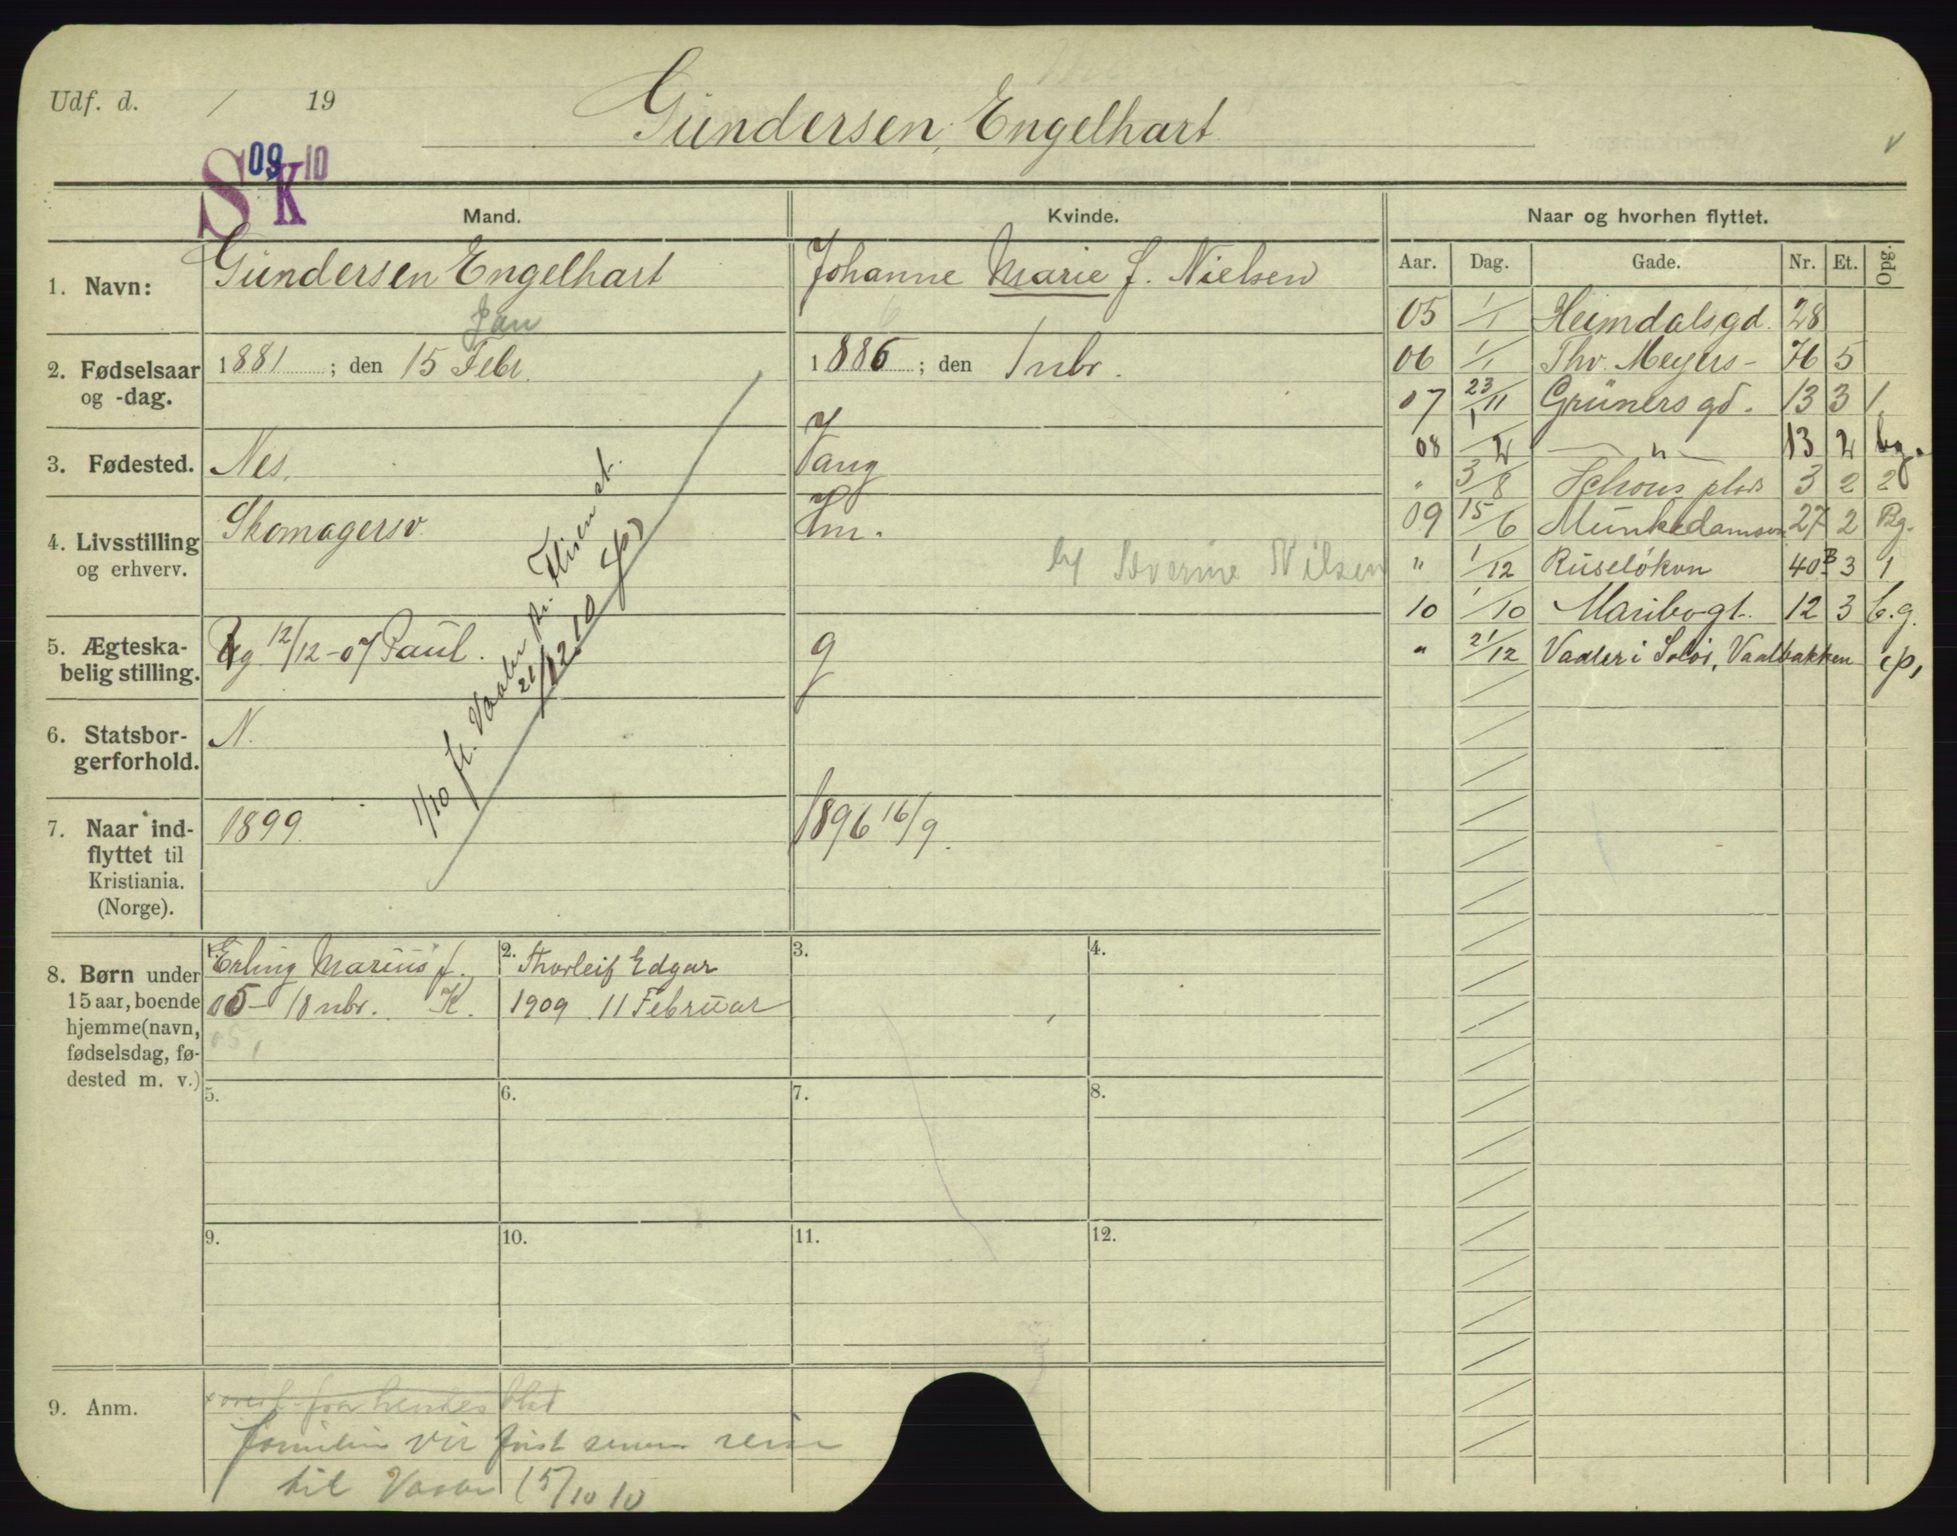 Udf. d. / 19
Gundersen, Engelhart
S 09 K 10
Mand.
Kvinde.
Naar og hvorhen flyttet.
1. Navn:
Gundersen Engelhart
Johanne Marie f. Nielsen
Aar. Dag. Gade. Nr. Et. Opg.
2. Fødselsaar og -dag.
Jan
1881 ; den 15 Febr.
1886 ; den 1 nbr.
3. Fødested.
Nes.
Vang
4. Livsstilling og erhverv.
Skomagersv.
Hm.
Severine Nilsen
5. Ægteska-
belig stilling.
g 12/12-07 Paul.
g
6. Statsbor-
gerforhold.
N.
7. Naar ind-
flyttet til
Kristiania.
(Norge).
1899.
1896 16/9.
1/10 fl. Vaaler pr. Flisen st.
21/12.10
05 1/1 Heimdalsgd. 28
06 1/1 Thv. Meyers- 76 5
07 23/11 Grüners gd. 13 3 1
08 1/2 — " — 13 2 bg.
" 3/8 Schous plads 3 2 2
09 15/6 Munkedamsvn 27 2 Bg.
" 1/12 Ruseløkvn 40B 3 1
10 1/10 Maribogt. 12 3 b.g.
" 21/12 Vaaler i Solør, Vaalbakken
8. Børn under
15 aar, boende
hjemme (navn,
fødselsdag, fø-
dested m. v.)
1. Erling Marius f.
05 - 18 nbr. K.
05,
2. Thorleif Edgar
1909 11 Februar
3.
4.
5.
6.
7.
8.
9.
10.
11.
12.
9. Anm.
fra hendes blad
familien vil først senere reise
til Vaaler 15/10 10